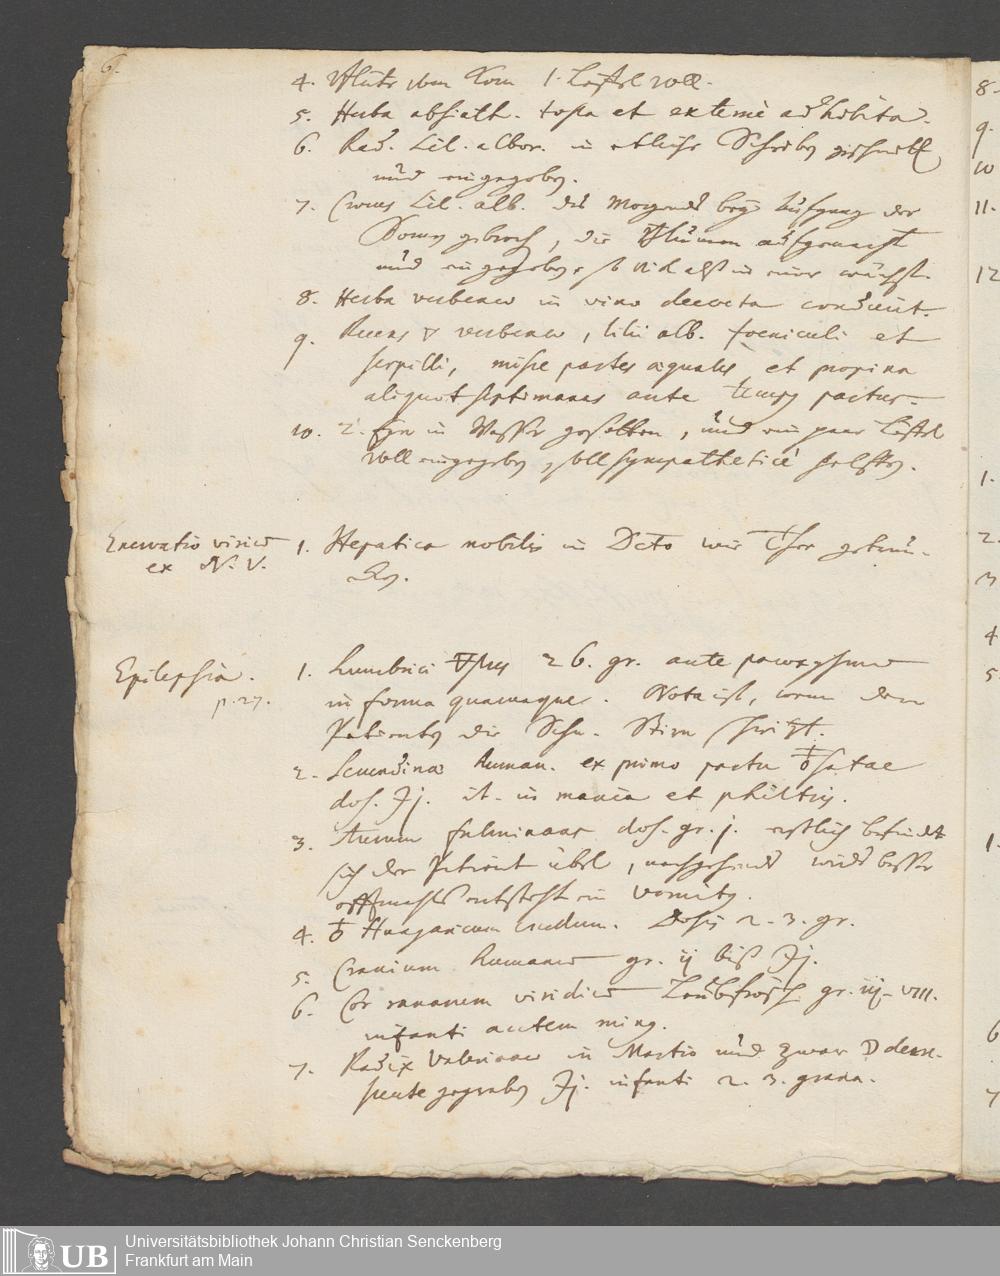 6.
4. Blüt vom Korn 1. Löffel voll.
5. Herba absinth. tosta et externè adhibita.
6. Rad. Lil. albor. in etliche Scheiben zerschnitt
und eingegeben.
7. Crocus Lil. alb. des Morgends bey Aufgang der
Sonnen gebroch, die Blumen aufgemacht
und eingegeben, so viel alß in einer wächst.
8. Herba verbenae in vino decocta conducunt.
9. Recens verbenae, lilii alb. foeniculi et
serpilli, misce partes aequales et propina
aliquot septimanas ante temp partus.
10. 2. Eyer in Wasser gesotten, und ein paar Löffel
voll eingegeben, soll sympatheticè helffen.
Enervatio virium
ex N. V.
1. Hepatica nobilis in Dcto wie Thee getrun-
ken.
Epilepsia.
p. 27.
1. Lumbrici 26. gr. ante paroxysmum
in forma quacunque. Nota ist, wenn dem
Patienten die Stirn schwizt.
2. Secundina human. ex primo partu
dos. it. in mania et philtris.
3. Aurum fulminans dos. gr. j. erstlich befindet
sich der Patient übel, nachgehends wirds besser
offtmahls entsteht ein vomitg.
4. ♁ Hungaricum crudum. Dosis 2. 3. gr.
5. Cranium humanum gr. ij biß
6. Cor ranarum viridium Laubfrösch gr. iij-VIII.
infanti autem ming.
7. Radix Valerianae in Martio und zwar ☽ decre-
scente gegraben infanti 2. 3. grana.
8.
9.
10
11.
12
1.
2.
3
4
5.
1.
6
7
Universitätsbibliothek Johann Christian Senckenberg
Frankfurt am Main
UB